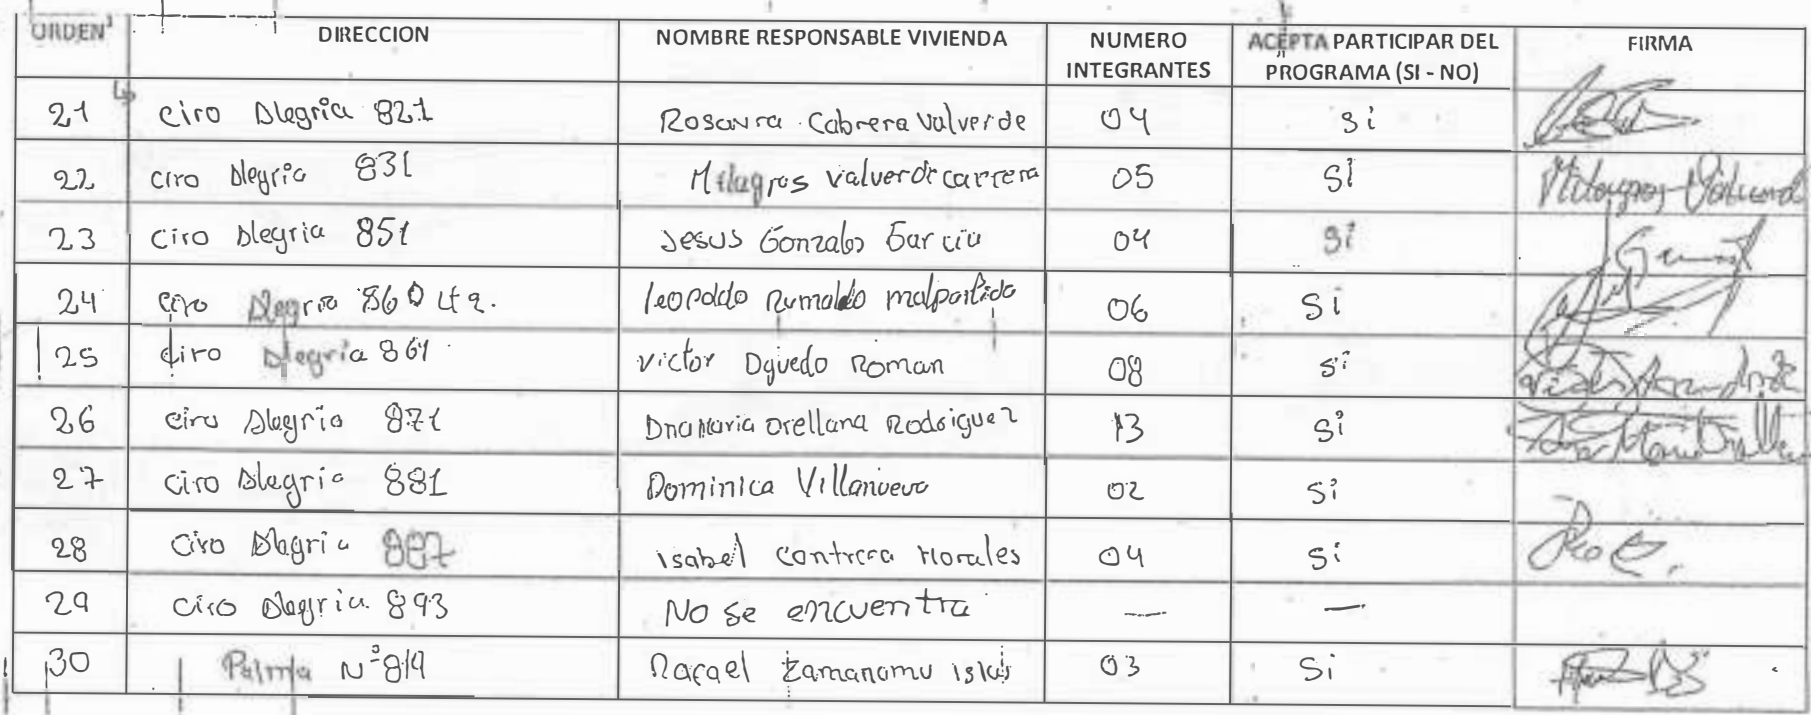 ORDEN DIRECCION NOMBRE RESPONSABLE VIVIENDA NUMERO INTEGRANTES ACEPTA PARTICIPAR DEL PROGRAMA (SI - NO) FIRMA
21 Ciro Alegria 821 Rosavra Cabrera Valverde 04 Si
22 Ciro Alegria 831 Milagros Valverde Carrera 05 SI Milagros
23 Ciro Alegria 851 Jesus Gonzales Garcia 04 Si
24 Ciro Alegria 860 Leopoldo Rumaldo Malpartida 06 Si
25 Ciro Alegria 861 Victor Roman 08 Si
26 Ciro Alegria 871 Ana Maria Orellana Rodriguez 13 Si
27 Ciro Alegria 881 Dominica Villanueva 02 Si
28 Ciro Alegria 887 Isabel Contrera Morales 04 Si
29 Ciro Alegria 893 No se encuentra — —
30 Palma N° 819 Rafael Zamanamu Islas 03 Si